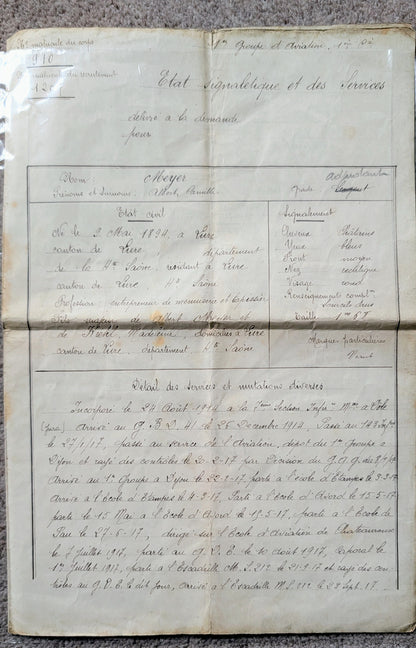 N° matricule du corps
910
matricule du recrutement
120
1er Groupe d'Aviation, 1re Cie
Etat signalétique et des Services
délivré à la demande
pour
Nom : Meyer
Prénoms et Surnoms : Albert, Camille
Grade adjudant
Sergent
Etat civil
Né le 2 Mai 1894, à Lure
canton de Lure, département
de la Hte Saône, résidant à Lure
canton de Lure Hte Saône
Profession : entrepreneur de menuiserie et tapissier
Fils de Albert Meyer et
de Madeleine, domiciliés à Lure
canton de Lure, département Hte Saône
Signalement
Cheveux
Yeux bleus
Front moyen
Nez rectiligne
Visage rond
Renseignements compl.
Sourcils
Taille 1m 67
Marques particulières
Néant
Détail des services et mutations diverses
Incorporé le 24 Août 1914 à la 7ème Section Infirs Mres à Dole
(Jura), arrivé au G. B. D. 41 le 26 Decembre 1914, Passé au 143
le 27/1/17, passé au service de l'Aviation, dépôt du 1er Groupe à
Dijon et rayé des contrôles le 20-2-17 par Décision du G. Q. G.
Arrivé au 1er Groupe à Lyon le 22-2-17, parti à l'école d'Etampes le 3-3-17
Arrivé à l'école d'Etampes le 4-3-17, Parti à l'école d'Avord le 15-5-17
parti le 15 Mai à l'école d'Avord le 15-5-17, parti à l'école de
Pau le 27-6-17, dirigé sur l'Ecole d'Aviation de Chateauroux
le 7 Juillet 1917, parti au G. D. E. le 10 août 1917, Caporal le
1er Juillet 1917, parti à l'Escadrille M. S. 212 le 21-9-17 et rayé des con-
trôles au G. D. E. le dit jour, arrivé à l'Escadrille M. S. 212 le 22 Sept. 17